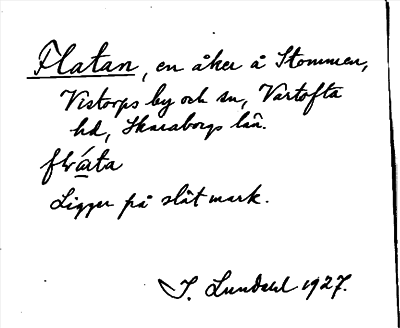 Flatan, en åker å Stommen,
Vistorps by och sn, Vartofta
hd, Skaraborgs län.
Ligger på slät mark.
I. Lundahl 1927.